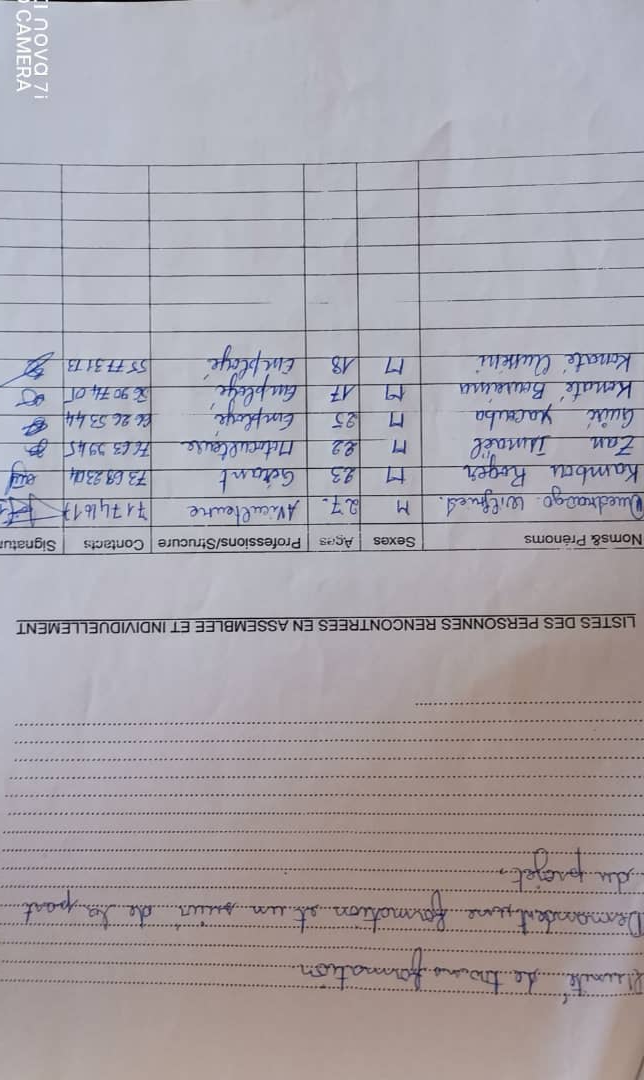 l'unité de transformation.
Demandent une formation et un suivi de la part
du projet,
LISTES DES PERSONNES RENCONTREES EN ASSEMBLEE ET INDIVIDUELLEMENT
Noms& Prénoms Sexes Ages Professions/Strucure Contacts Signatur
Ouedraogo Wilfried. M 27. Aviculteure
Kambou Roger M 23 Gérant 73 68 23 04
Zan Ismaël M 22 76 63 39 45
Guiré Yacouba M 25 Employé, 66 26 53 44
Konaté Boureima M 17 Employé 90 74 05
Konaté M 18 Employé 55 77 31 73
nova 7i
CAMERA